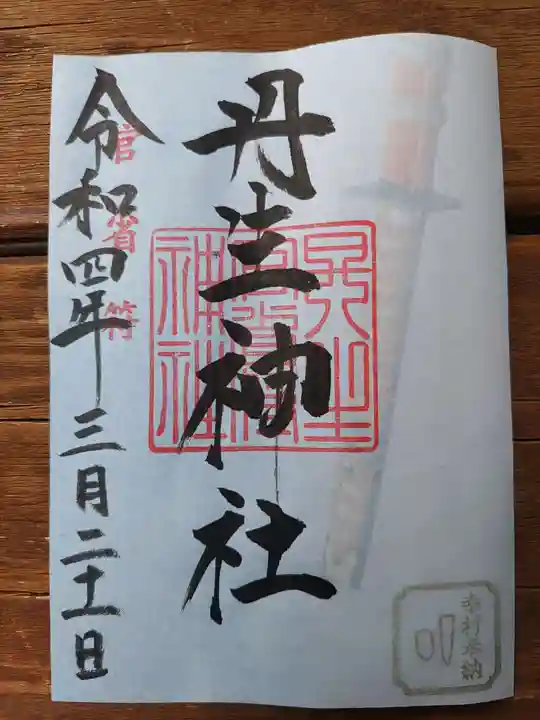 丹生神社
丹生
官省符
神社
官省符
令和四年三月二十一日
奉納